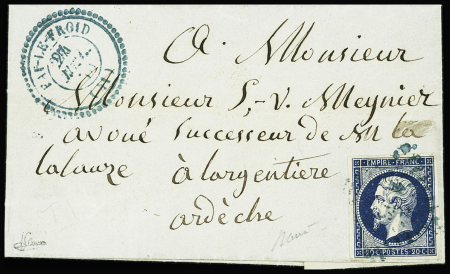 FAY-LE-FROID
24
A Monsieur
Monsieur S,-V. Meynier
avoué Successeur de M
lalauze à largentière
ardèche
EMPIRE FRANC
20 c POSTES 20 C